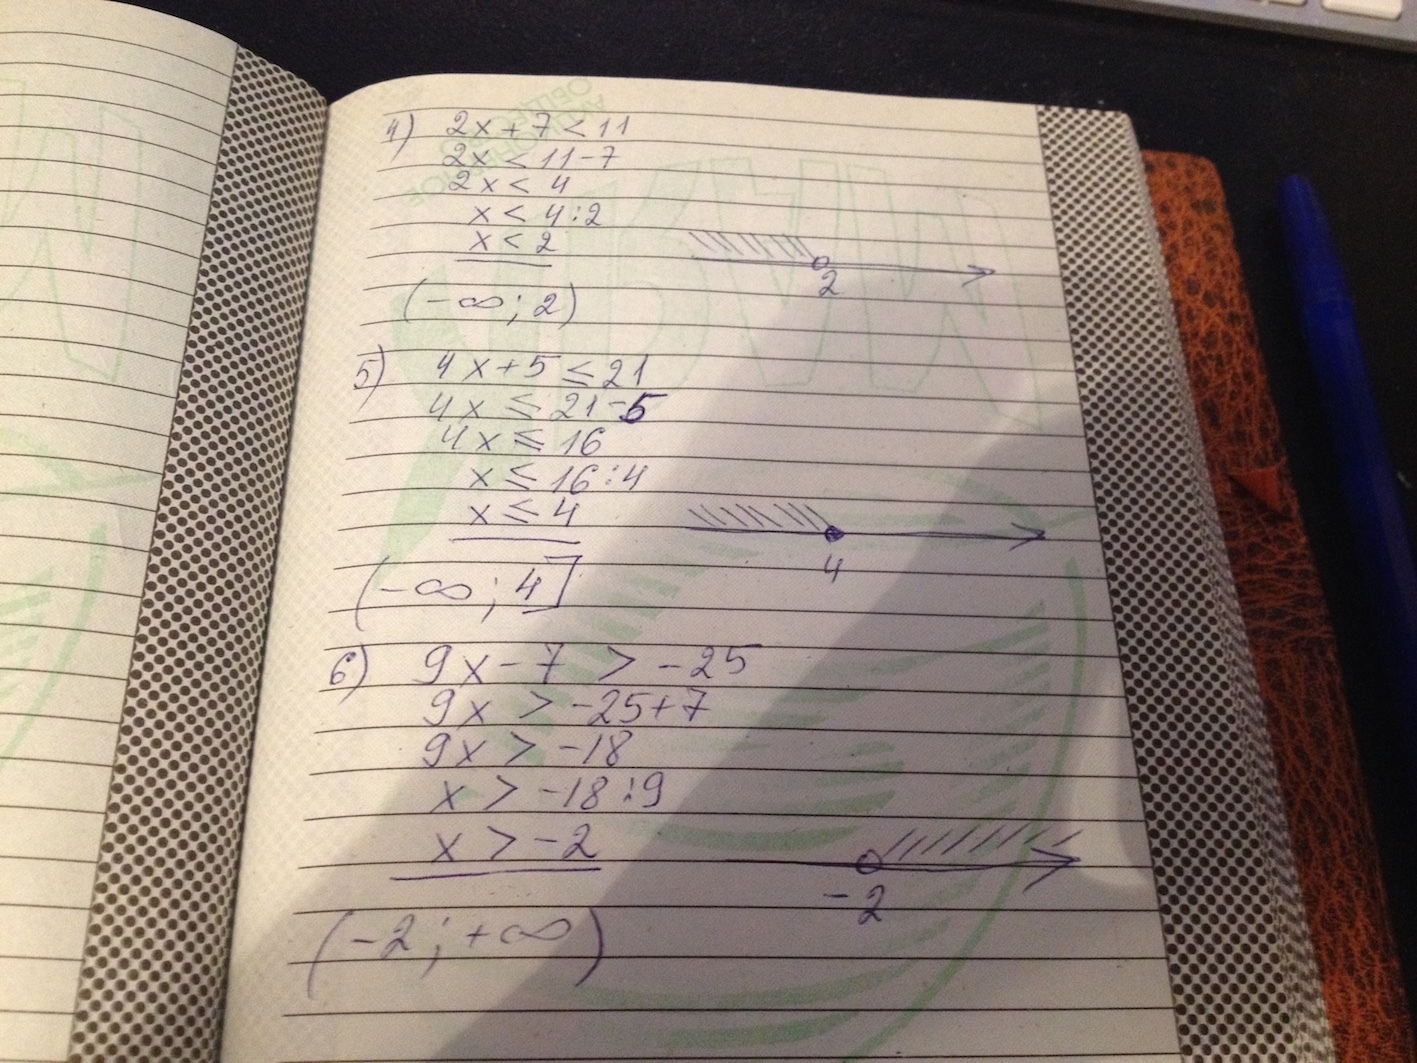 4) 2x + 7 < 11
2x < 11 - 7
2x < 4
x < 4 : 2
x < 2
2
(-∞; 2)
5) 4x + 5 ≤ 21
4x ≤ 21 - 5
4x ≤ 16
x ≤ 16 : 4
x ≤ 4
4
(-∞; 4]
6) 9x - 7 > -25
9x > -25 + 7
9x > -18
x > -18 : 9
x > -2
-2
(-2; +∞)